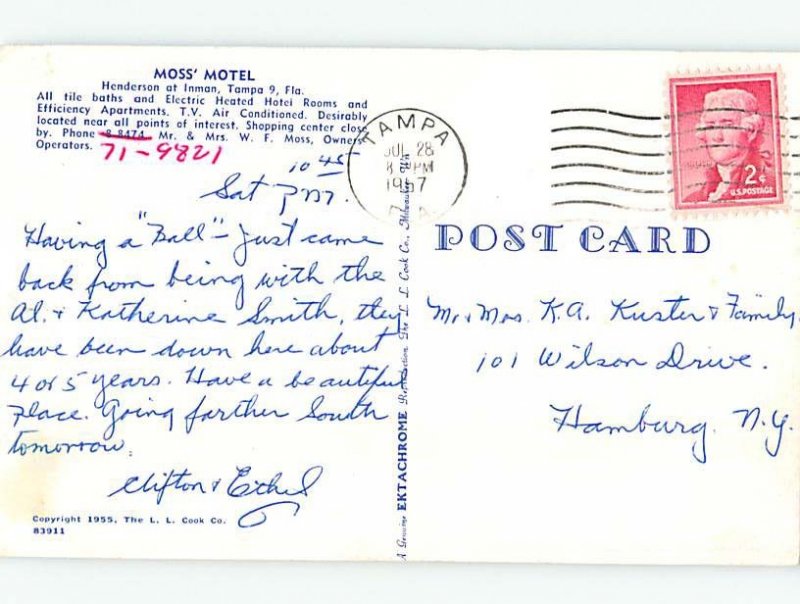 MOSS' MOTEL
Henderson at Inman, Tampa 9, Fla.
All tile baths and Electric Heated Hotel Rooms and
Efficiency Apartments. T.V. Air Conditioned. Desirably
located near all points of interest. Shopping center close
by. Phone 8-8474. Mr. & Mrs. W. F. Moss, Owners
Operators.
71-9821
10 45
Sat P M.
Having a "Ball" - just came
back from being with the
Al. & Katherine Smith, they
have been down here about
4 or 5 years. Have a beautiful
place. Going farther South
tomorrow.
Clifton & Ethel
Copyright 1955, The L. L. Cook Co.
83911
A Genuine EKTACHROME Reproduction The L. L. Cook Co., Milwaukee, Wis
TAMPA
JUL 28
8 PM
1957
2¢
U.S. POSTAGE
POST CARD
Mr. & Mrs. K.A. Kuster & Family
101 Wilson Drive.
Hamburg, N.Y.